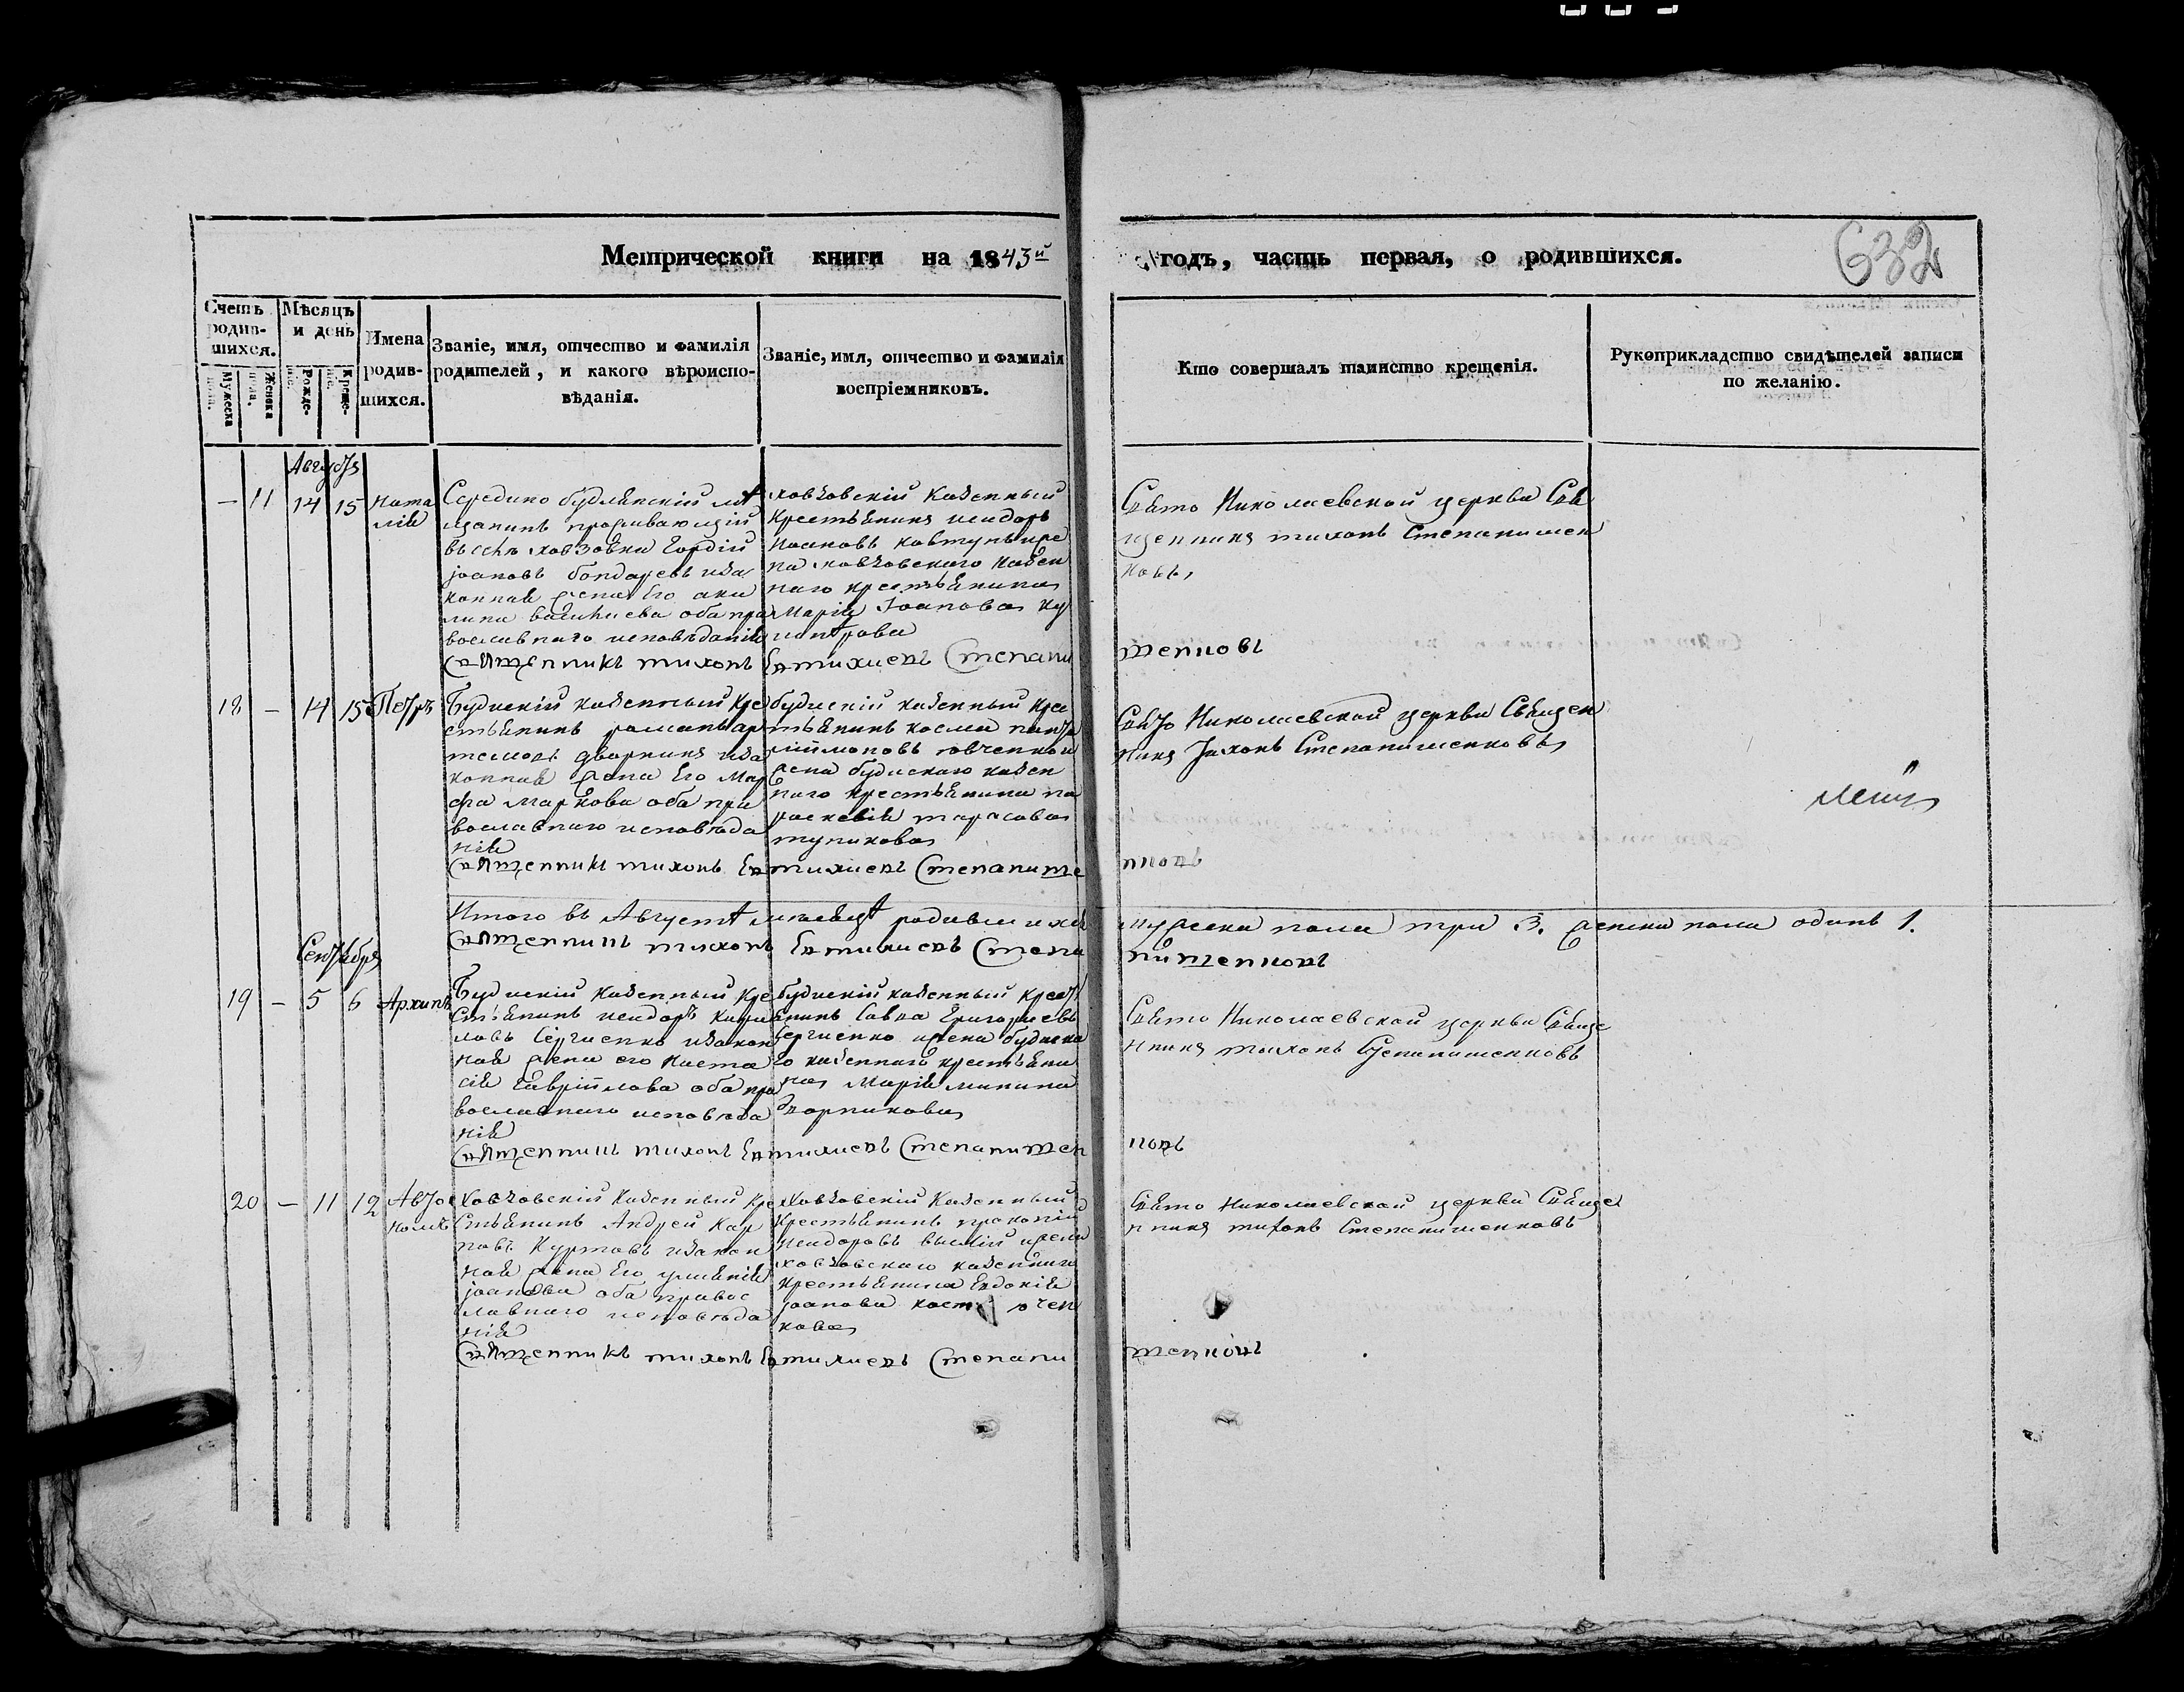 Метрической книги на 1843й
годъ, часть первая, о родившихся.
632
Счетъ родив-шихся.
Мужеска пола.
Женска пола.
Мѣсяцъ и день
Рожде-нія.
Креще-нія.
Имена родив-шихся.
Званіе, имя, отчество и фамилія
родителей, и какого вѣроиспо-
вѣданія.
Званіе, имя, отчество и фамилія
воспріемниковъ.
Кто совершалъ таинство крещенія.
Рукоприкладство свидѣтелей записи
по желанію.
Августа
— 11 14 15 Ната
лія
Середино будлянскій мѣ
щанинъ проживающій
въ селѣ ховзовки Гордій
іоановъ бондаревъ иза
конная жена Его аки
лина василиева оба пра
вославнаго исповѣданія
ховзовскій казенный
Крестьянинъ исидоръ
иоановъ
на ховзовскаго казен
наго крестьянина
Марія Іоанова
Свято Николаевской церкви Свя
щенникъ тихонъ Степанишен
ковъ,
Священникъ тихонъ Евтихиевъ Степани
шенковъ
18 — 14 15 Петръ
Будискій казенный кре
стьянинъ романъ ар
темовъ дворникъ иза
конная жена Его Мар
фа Маркова оба пра
вославнаго исповѣда
нія
будискій казенный крес
тьянинъ косма
жена будискаго казен
наго крестьянина па
раскевія тарасова
тупикова
Свято Николаевской церкви Священ
никъ Тихонъ Степанишенковъ
Священникъ тихонъ Евтихиевъ Степанише
нковъ
Итого въ Августѣ месяцѣ родившихся
мужеска пола три 3. женска пола одинъ 1.
Священникъ тихонъ Евтихиевъ Степа
нишенковъ
Сентября
19 — 5 6 Архипъ
Будискій казенный кре
стьянинъ исидоръ кири
ловъ Сергиенко изакон
ная жена его Наста
сія Гавріилова оба пра
вославнаго исповѣда
нія
будискій казенный крест
янинъ Савва Григориевъ
Сергиенко ижена будиска
го казеннаго крестьяни
на Марія минина
дворникова
Свято Николаевской церкви Свяще
нникъ тихонъ Степанишенковъ
Священникъ тихонъ Евтихиевъ Степанишен
ковъ
20 — 11 12 Авто
номъ
Ховзовскій казенный кре
стьянинъ Андрей Кар
повъ Куртовъ изакон
ная жена Его улиянія
іоанова оба правос
лавнаго исповѣда
нія
Ховзовскій казенный
крестьянинъ прокопій
исидоровъ ижена
ховзовскаго казеннаго
крестьянина Евдокія
іоанова
кова
Свято Николаевской церкви Свяще
нникъ тихонъ Степанишенковъ
Священникъ тихонъ Евтихиевъ Степани
шенковъ